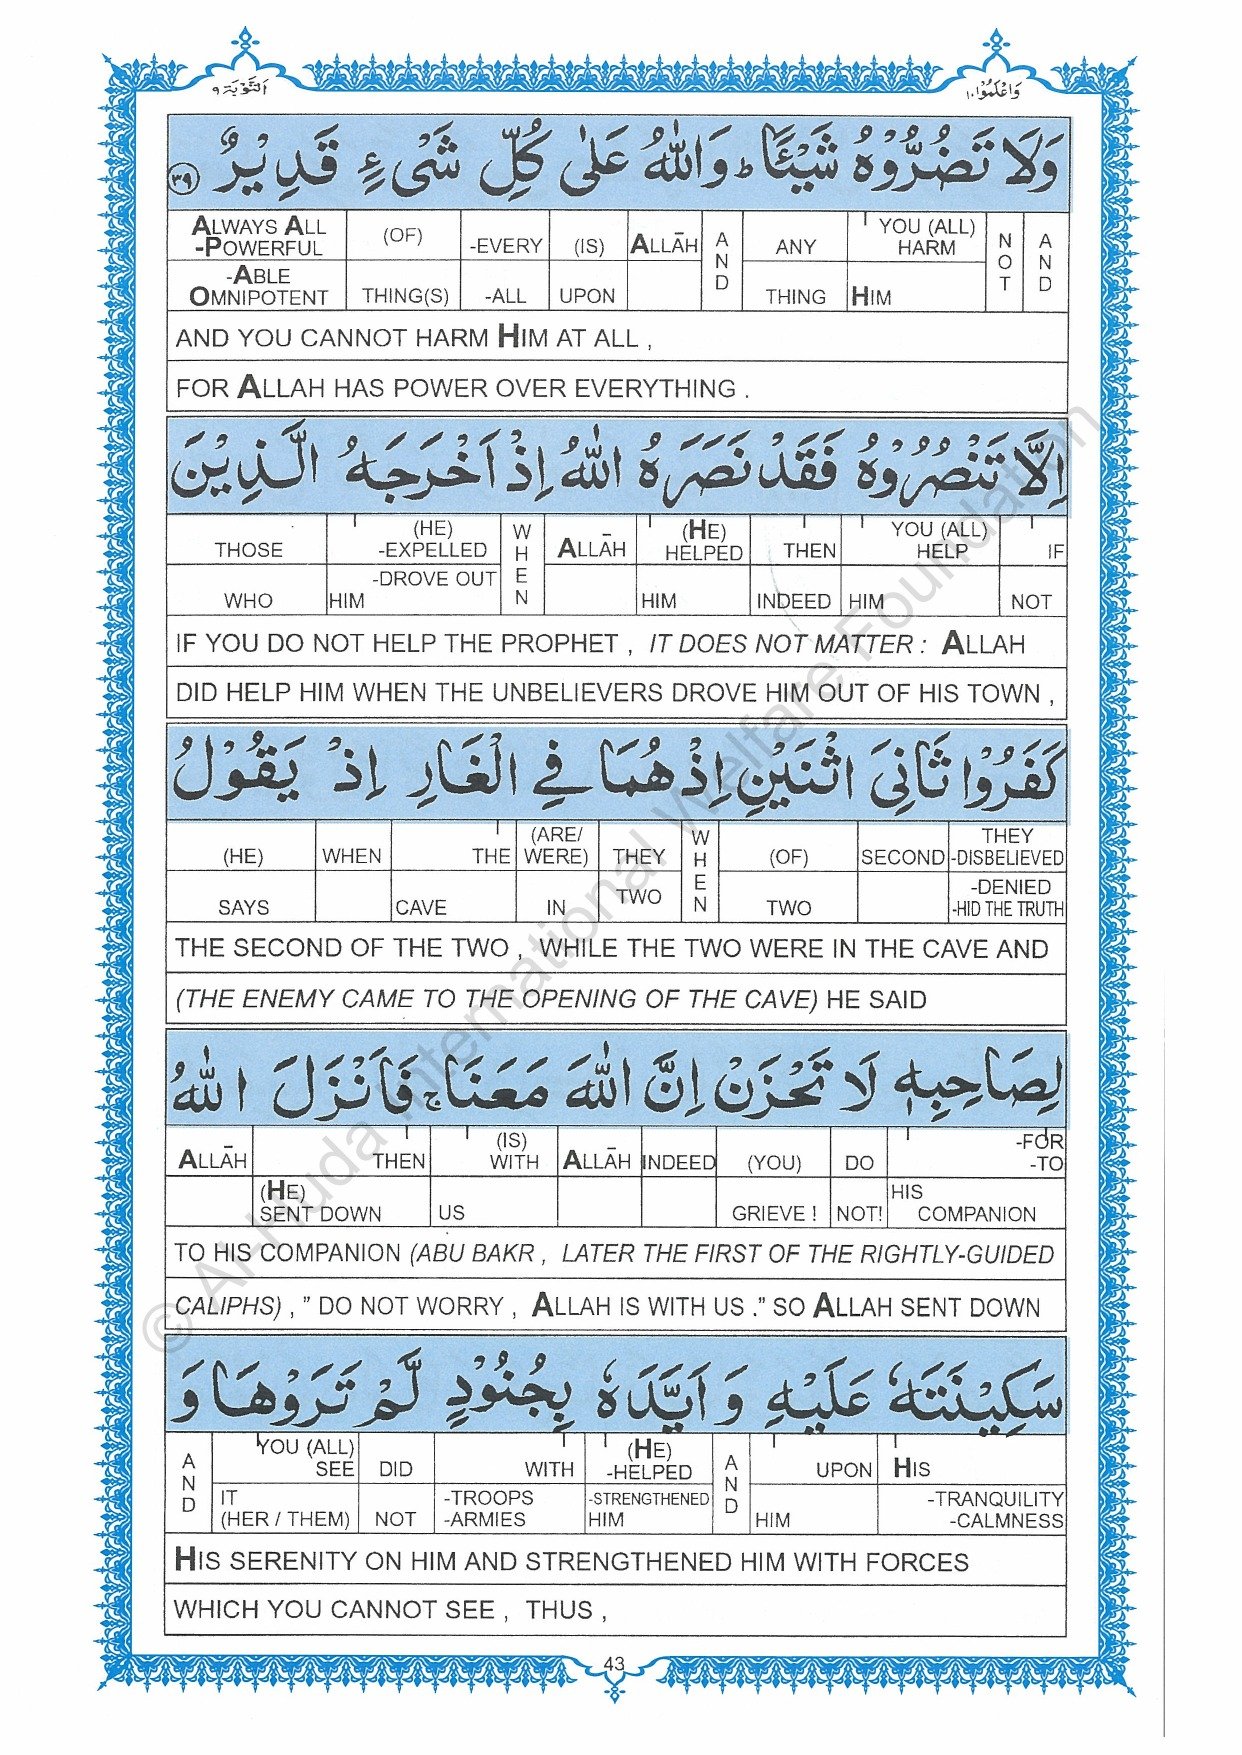 وَاعْلَمُوْا ١٠
اَلتَّوْبَة ٩
وَلَا تَضُرُّوْهُ شَيْئًا ط وَاللّٰهُ عَلٰى كُلِّ شَىْءٍ قَدِيْرٌ ٣٩
ALWAYS ALL -POWERFUL (OF) -EVERY (IS) ALLĀH AND ANY YOU (ALL) HARM NOT AND
-ABLE OMNIPOTENT THING(S) -ALL UPON THING HIM
AND YOU CANNOT HARM HIM AT ALL ,
FOR ALLAH HAS POWER OVER EVERYTHING .
اِلَّا تَنْصُرُوْهُ فَقَدْ نَصَرَهُ اللّٰهُ اِذْ اَخْرَجَهُ الَّذِيْنَ
THOSE (HE) -EXPELLED WHEN ALLĀH (HE) HELPED THEN YOU (ALL) HELP IF
WHO -DROVE OUT HIM HIM INDEED HIM NOT
IF YOU DO NOT HELP THE PROPHET , IT DOES NOT MATTER : ALLAH
DID HELP HIM WHEN THE UNBELIEVERS DROVE HIM OUT OF HIS TOWN ,
كَفَرُوْا ثَانِىَ اثْنَيْنِ اِذْ هُمَا فِي الْغَارِ اِذْ يَقُوْلُ
(HE) WHEN THE (ARE/ WERE) THEY WHEN (OF) SECOND THEY -DISBELIEVED
SAYS CAVE IN TWO TWO -DENIED -HID THE TRUTH
THE SECOND OF THE TWO , WHILE THE TWO WERE IN THE CAVE AND
(THE ENEMY CAME TO THE OPENING OF THE CAVE) HE SAID
لِصَاحِبِهٖ لَا تَحْزَنْ اِنَّ اللّٰهَ مَعَنَا ج فَاَنْزَلَ اللّٰهُ
ALLĀH THEN (IS) WITH ALLĀH INDEED (YOU) DO -FOR -TO
(HE) SENT DOWN US GRIEVE ! NOT! HIS COMPANION
TO HIS COMPANION (ABU BAKR , LATER THE FIRST OF THE RIGHTLY-GUIDED
CALIPHS) , ” DO NOT WORRY , ALLAH IS WITH US .” SO ALLAH SENT DOWN
سَكِيْنَتَهٗ عَلَيْهِ وَ اَيَّدَهٗ بِجُنُوْدٍ لَّمْ تَرَوْهَا وَ
AND YOU (ALL) SEE DID WITH (HE) -HELPED AND UPON HIS
IT (HER / THEM) NOT -TROOPS -ARMIES -STRENGTHENED HIM HIM -TRANQUILITY -CALMNESS
HIS SERENITY ON HIM AND STRENGTHENED HIM WITH FORCES
WHICH YOU CANNOT SEE , THUS ,
43
© Al-Huda International Welfare Foundation